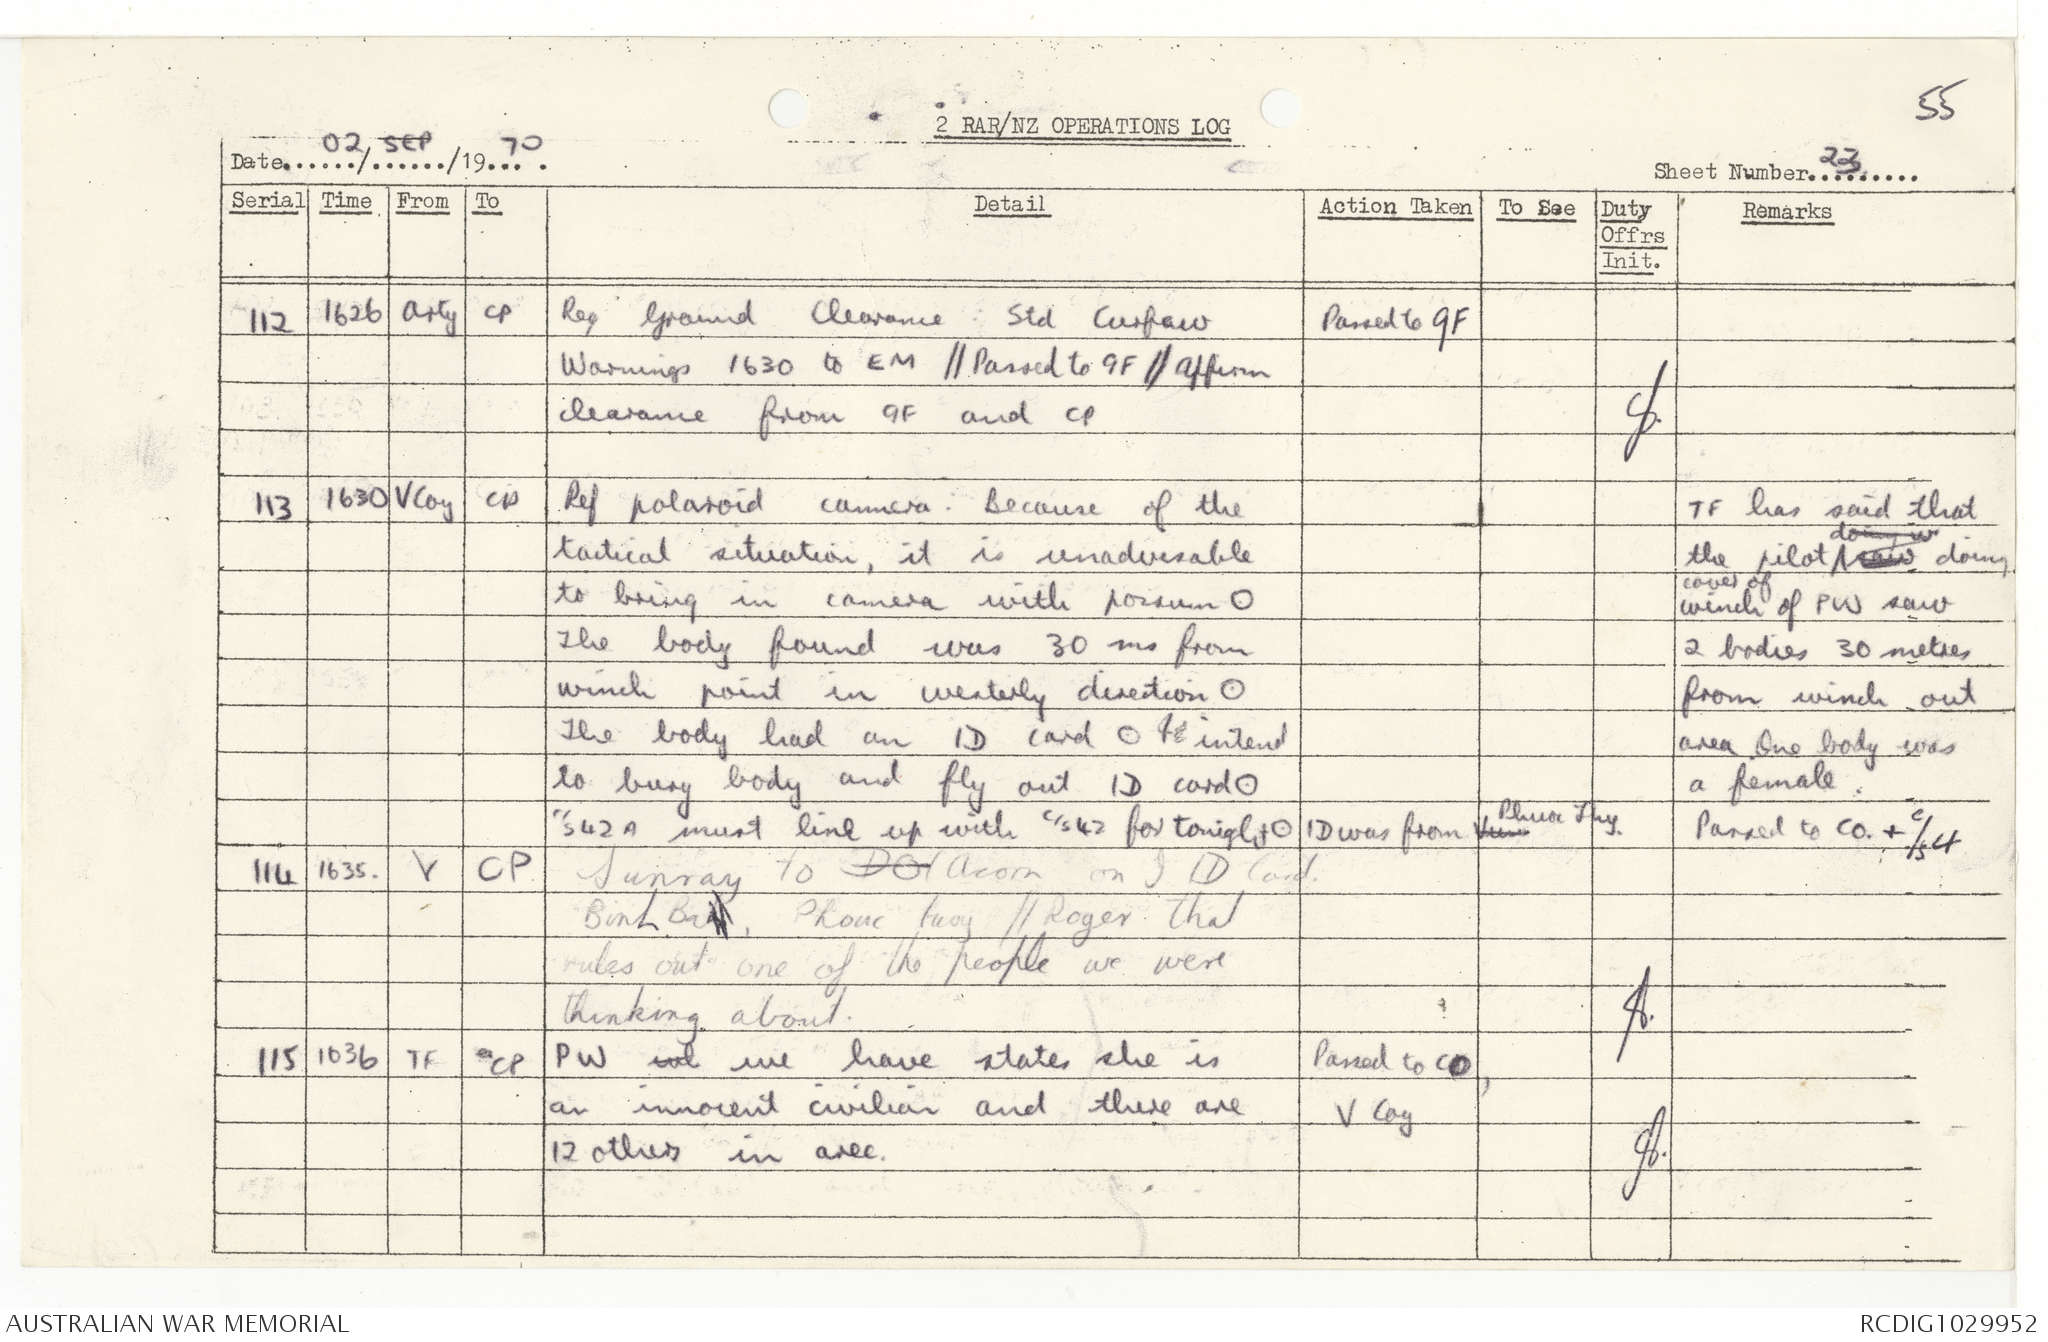 55
2 RAR/NZ OPERATIONS LOG
Date 02/SEP/1970
Sheet Number 23
Serial Time From To Detail Action Taken To See Duty Offrs Init. Remarks
112 1626 Arty CP Req Ground Clearance Std Curfew Passed to 9F
Warnings 1630 to EM // Passed to 9F // Affirm
clearance from 9F and CP
113 1630 V Coy CP Ref polaroid camera. Because of the TF has said that
tactical situation, it is unadvisable the pilot doing
to bring in camera with possum O cover of winch of PW saw
The body found was 30 ms from 2 bodies 30 metres
winch point in westerly direction O from winch out
The body had an ID card O We intend area One body was
to bury body and fly out ID card O a female.
C/S42A must link up with C/S42 for tonight O ID was from Phuoc Thy. Passed to CO. + C/S4
114 1635. V CP Sunray to Acorn on ID Card.
Binh Ba, Phouc // Roger that
rules out one of the people we were
thinking about.
115 1636 TF CP PW we have states she is Passed to CO,
an innocent civilian and there are V Coy
12 others in area.
AUSTRALIAN WAR MEMORIAL
RCDIG1029952